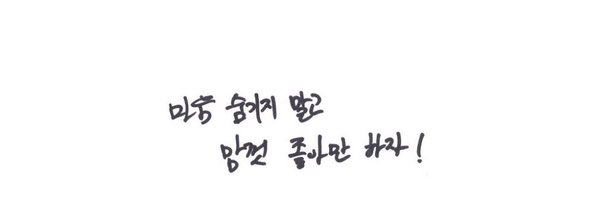 숨기지 말고
맘껏 좋아만 하자!